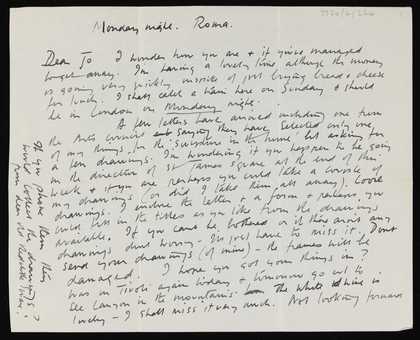 Monday night. Roma.
Dear Jo I wonder how you are & if you've managed
to get away. I'm having a lovely time although the money
is going very quickly inspite of just buying bread & cheese
for lunch. I shall catch a train here on Sunday & should
be in London on Monday night.
A few letters have arrived including one from
the Arts Council saying they have selected only one
of my things for the 'Sculpture in the Home' but asking for
a few drawings. I'm wondering if you happen to be going
in the direction of St James Square at the end of this
week & if you are perhaps you could take a couple of
my drawings (or did I take them all away). Loose
drawings. I enclose the letter & a form & perhaps you
could fill in the titles as you like from the drawings
available. If you can't be bothered or if there aren't any
drawings dont worry – I'll just have to miss it. Dont
send your drawings (of mine) – the frames will be
damaged. I hope you got your things in?
Was in Tivoli again today & tomorrow go out to
see Lanyon in the mountains. The white wine is
lovely – I shall miss it very much. Not looking forward
If you phone them they
would collect the drawings?